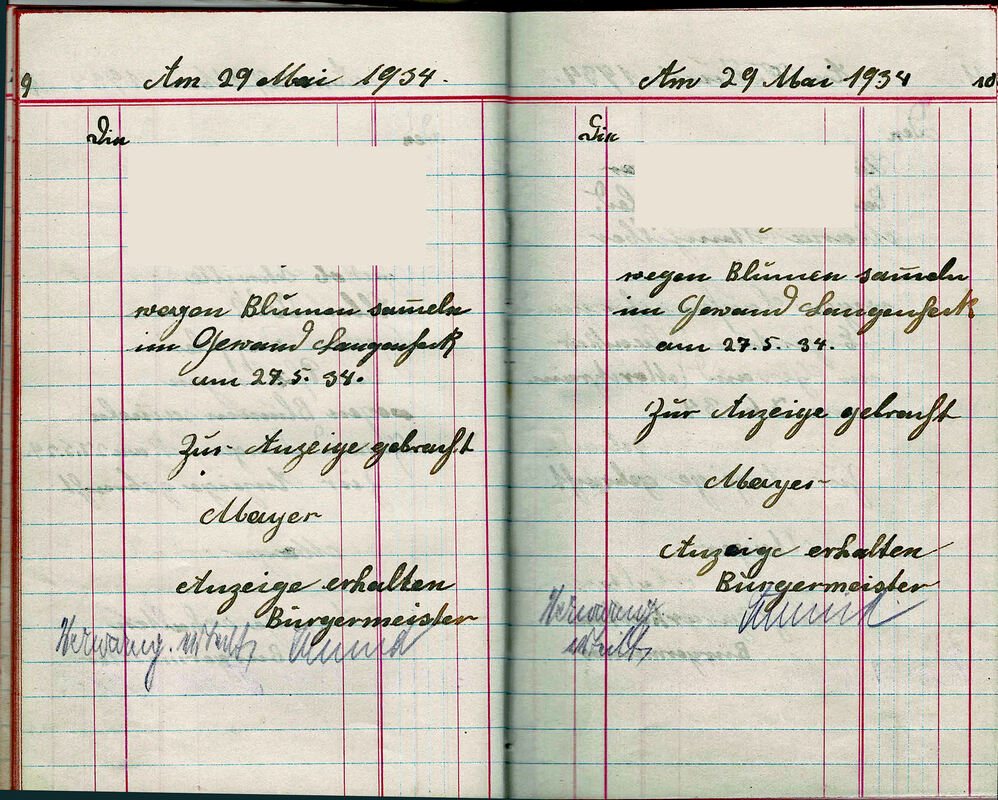 9
Am 29 Mai 1934.
Die
wegen Blumen sam̄eln
im Gewand Langenfeck
am 27.5. 34.
Zur Anzeige gebracht
Mayer
Anzeige erhalten
Bürgermeister
Verwarng. erteilt,
10
Am 29 Mai 1934
Die
wegen Blumen sam̄eln
im Gewand Langenfeck
am 27.5. 34.
Zur Anzeige gebracht
Mayer
Anzeige erhalten
Bürgermeister
Verwarng.
erteilt,